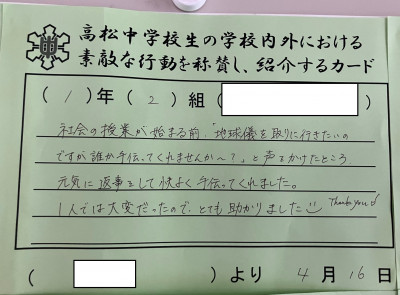 高松中学校生の学校内外における
素敵な行動を称賛し、紹介するカード
(1)年(2)組( )
社会の授業が始まる前、「地球儀を取りに行きたいの
ですが誰か手伝ってくれませんか〜?」と声をかけたところ
元気に返事をして快よく手伝ってくれました。
1人では大変だったので、とても助かりました Thank you
( )より 4月16日